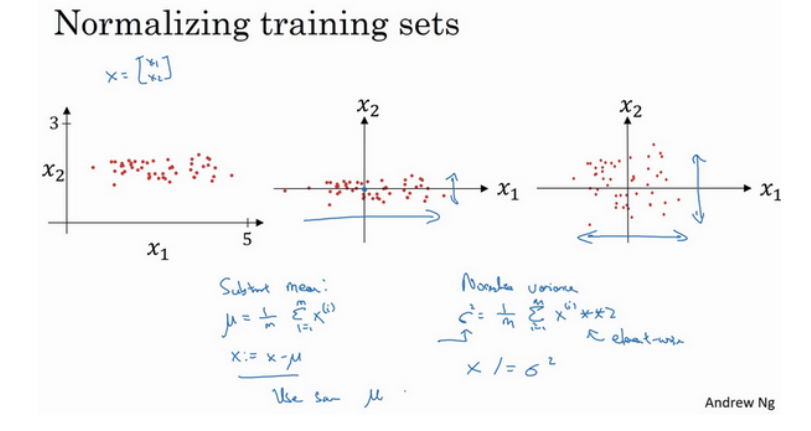 Normalizing training sets
x = [x₁ x₂]
3
x₂
x₁
5
x₂
x₁
x₂
x₁
Subtract mean:
μ = 1/m Σᵢ₌₁ᵐ x⁽ⁱ⁾
x := x - μ
Use same μ
Normalize variance
σ² = 1/m Σᵢ₌₁ᵐ x⁽ⁱ⁾ ** 2
element-wise
x /= σ²
Andrew Ng